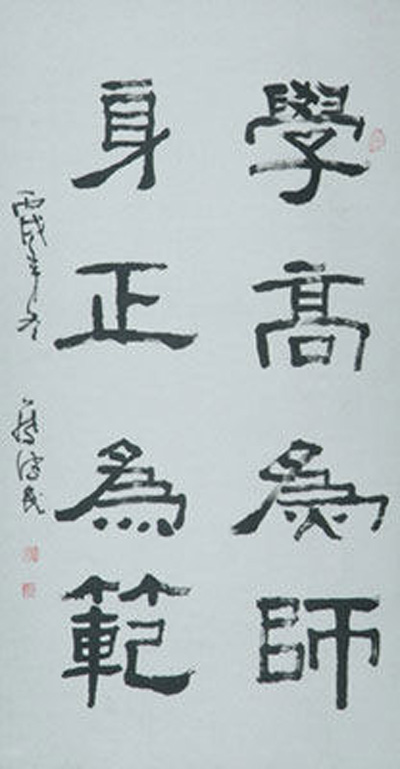 學高為師
身正為範
丙戌年冬